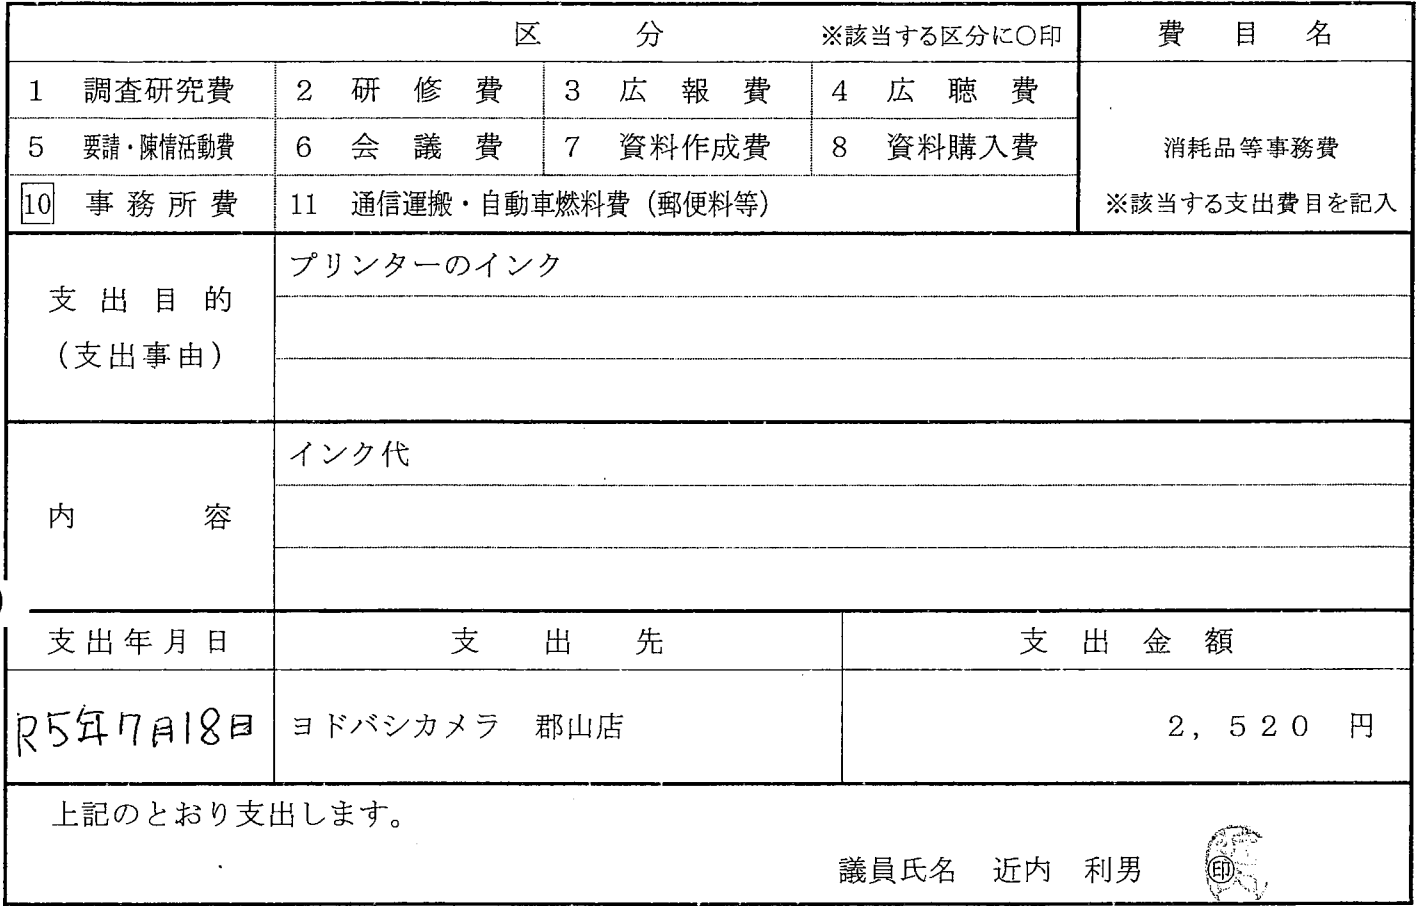 区分 ※該当する区分に○印 費目名
1 調査研究費 2 研修費 3 広報費 4 広聴費
5 要請・陳情活動費 6 会議費 7 資料作成費 8 資料購入費 消耗品等事務費
10 事務所費 11 通信運搬・自動車燃料費（郵便料等） ※該当する支出費目を記入
支出目的
（支出事由）
プリンターのインク
内容
インク代
支出年月日 支出先 支出金額
R5年7月18日 ヨドバシカメラ 郡山店 2,520 円
上記のとおり支出します。
議員氏名 近内 利男 ㊞